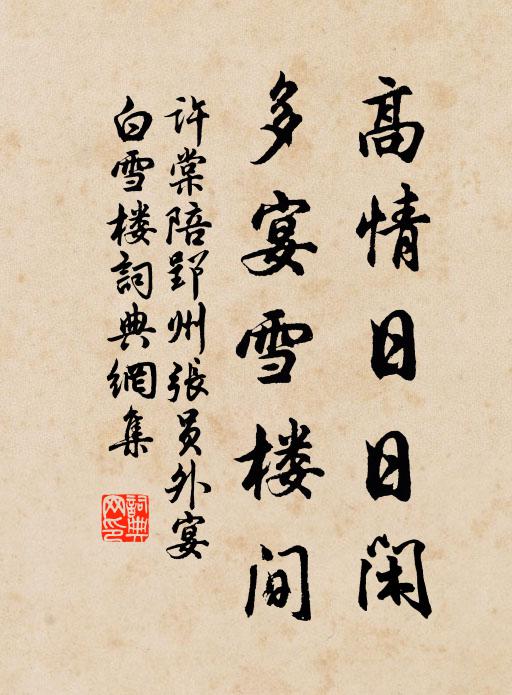 高情日日闲
多宴雪楼间
许棠陪郢州張员外宴
白雪楼詞典網集
詞典
网印